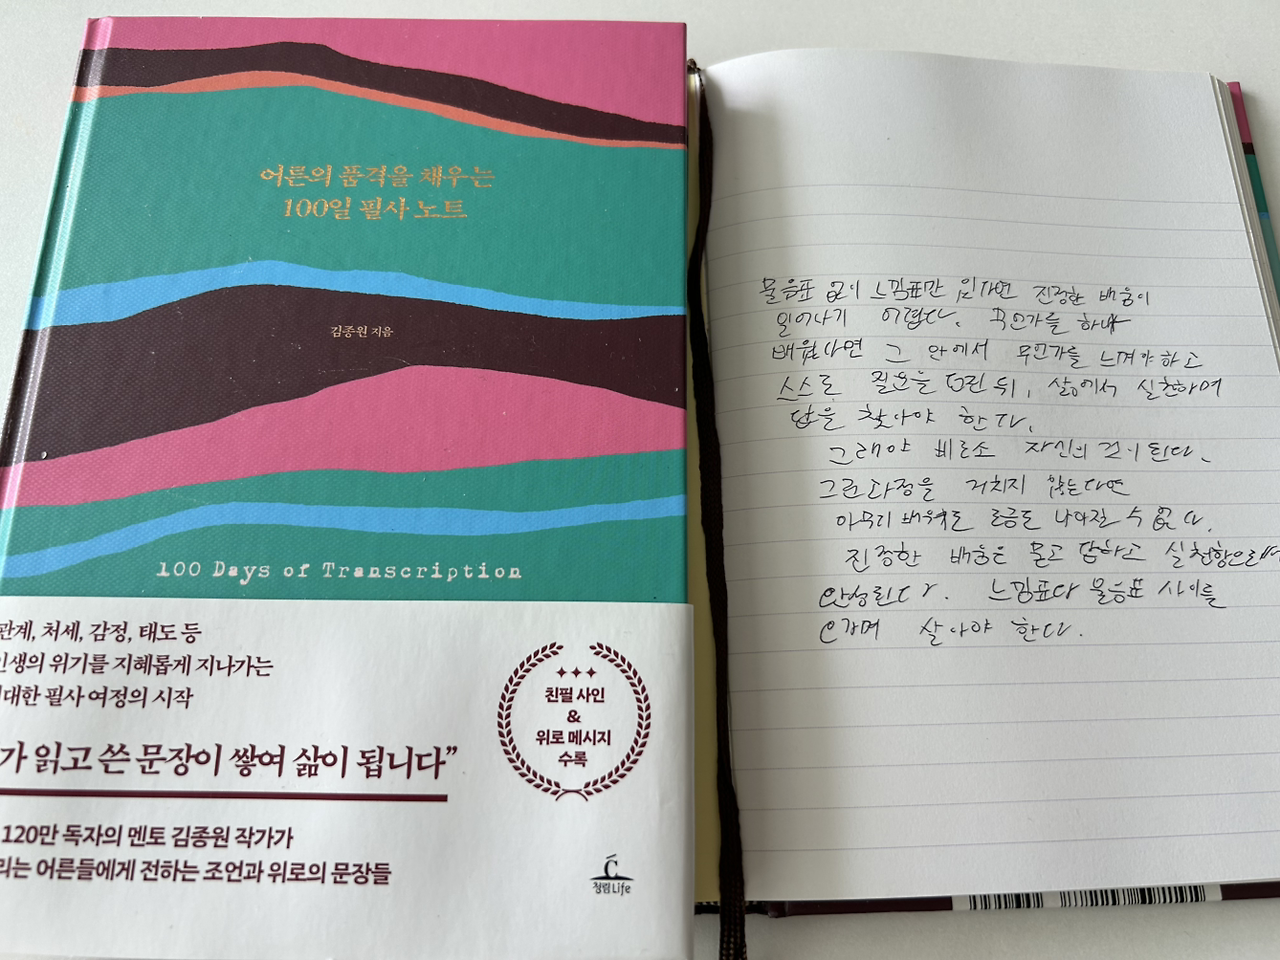 어른의 품격을 채우는
100일 필사 노트
김종원 지음
100 Days of Transcription
관계, 처세, 감정, 태도 등
인생의 위기를 지혜롭게 지나가는
대한 필사 여정의 시작
가 읽고 쓴 문장이 쌓여 삶이 됩니다”
120만 독자의 멘토 김종원 작가가
는 어른들에게 전하는 조언과 위로의 문장들
친필 사인
&
위로 메시지
수록
청림Life
물음표 없이 느낌표만 있다면 진정한 배움이
일어나기 어렵다. 무언가를 하나
배웠다면 그 안에서 무언가를 느껴야 하고
스스로 질문을 던진 뒤, 삶에서 실천하며
답을 찾아야 한다.
그래야 비로소 자신의 것이 된다.
그런 과정을 거치지 않는다면
아무리 배워도 조금도 나아질 수 없다.
진정한 배움은 묻고 답하고 실천함으로써
완성된다. 느낌표와 물음표 사이를
오가며 살아야 한다.